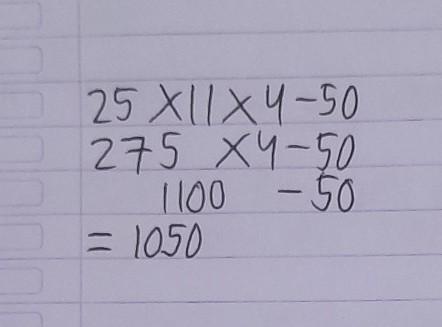 25 X11 X 4 - 50
275 X4 - 50
1100 - 50
= 1050